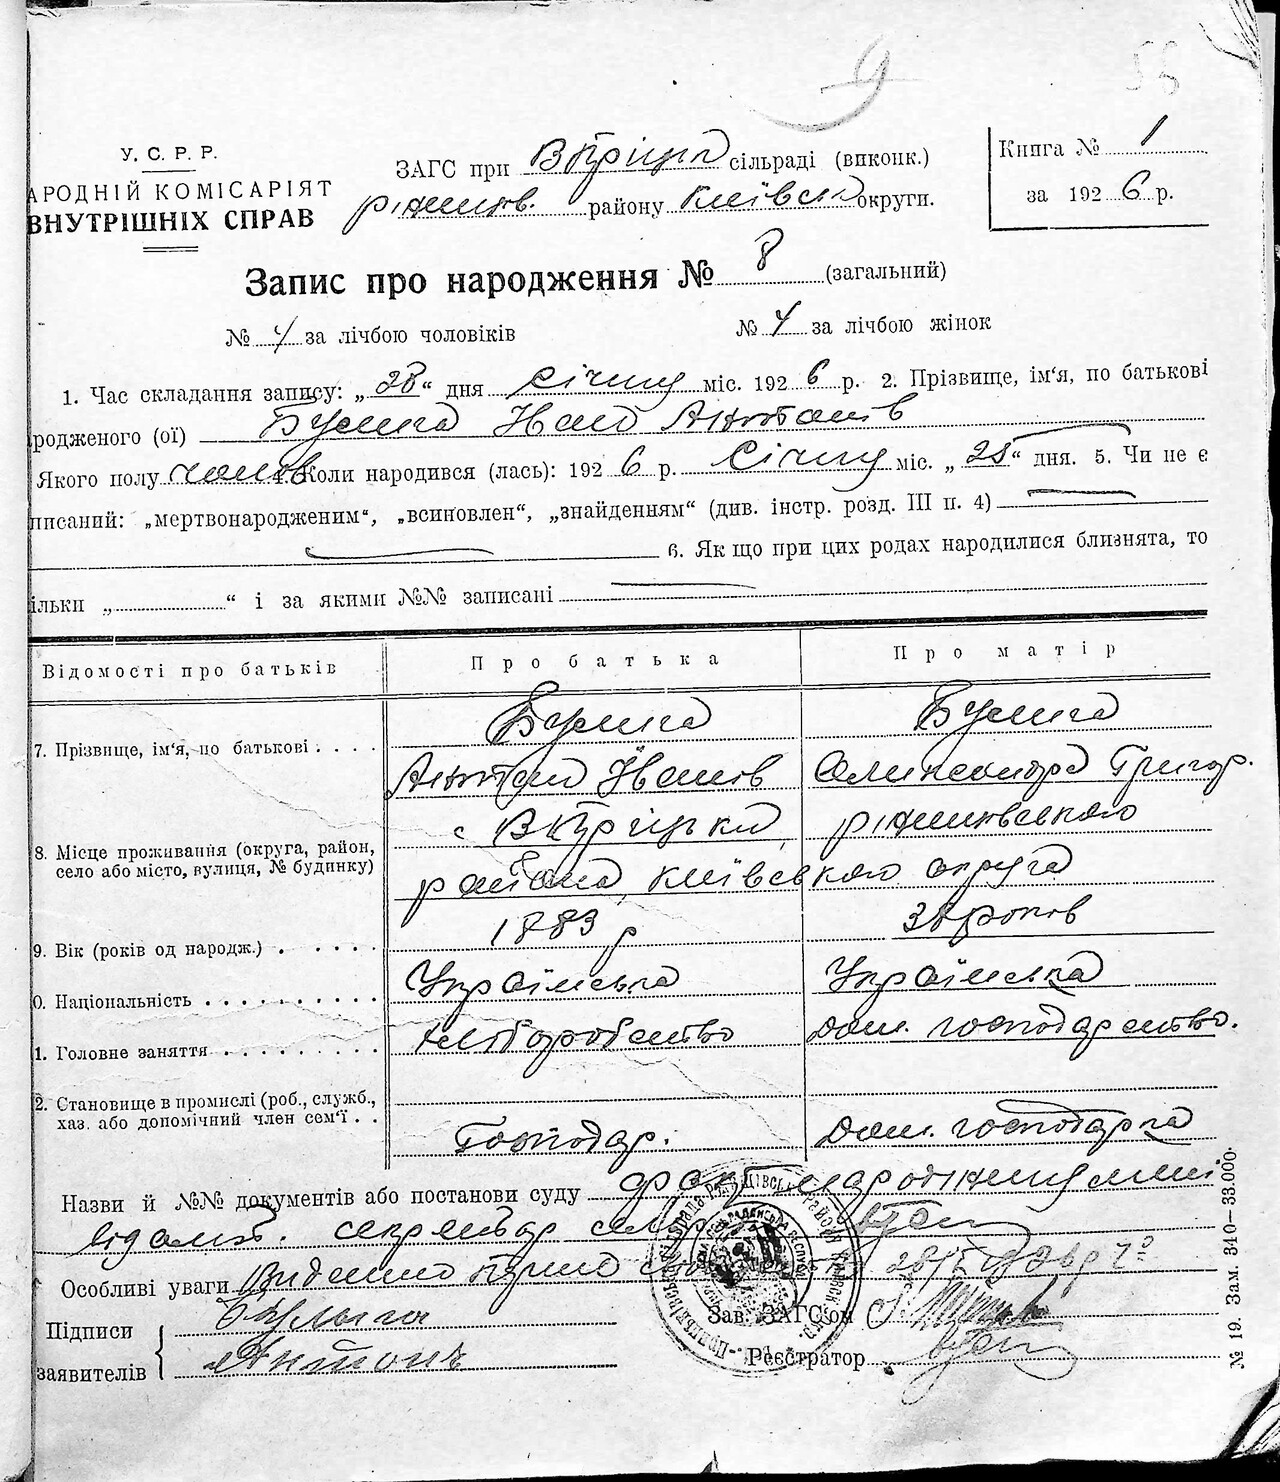 У. С. Р. Р.
АРОДНІЙ КОМІСАРІЯТ
ВНУТРІШНІХ СПРАВ
ЗАГС при сільраді (виконк.)
району Київськ округи.
Книга № 1
за 1926 р.
Запис про народження № 8 (загальний)
№ 4 за лічбою чоловіків № 4 за лічбою жінок
1. Час складання запису: „28“ дня Січня міс. 1926 р. 2. Прізвище, ім'я, по батькові
родженого (ої) Булига Іван Антонів
Якого полу чолов Коли народився (лась): 1926 р. Січня міс. „25“ дня. 5. Чи не є
писаний: „мертвонародженим“, „всиновлен“, „знайденням“ (див. інстр. розд. III п. 4)
6. Як що при цих родах народилися близнята, то
ільки „ “ і за якими №№ записані
Відомості про батьків Про батька Про матір
Булига Булига
7. Прізвище, ім'я, по батькові
Антон Іванов Олександра Григор.
8. Місце проживання (округа, район,
село або місто, вулиця, № будинку)
района Київського округа
9. Вік (років од народж.) 1883 р років
0. Національність Українська Українська
1. Головне заняття Хліборобство дом. господарство.
2. Становище в промислі (роб., служб.,
хаз. або допомічний член сем'ї
Господар. дом. господарка
Назви й №№ документів або постанови суду
секретар
Особливі уваги
Підписи заявителів
Булыга
Антонъ
Зав. ЗАГС'ом
Реєстратор
№ 19. Зам. 340—33.000.